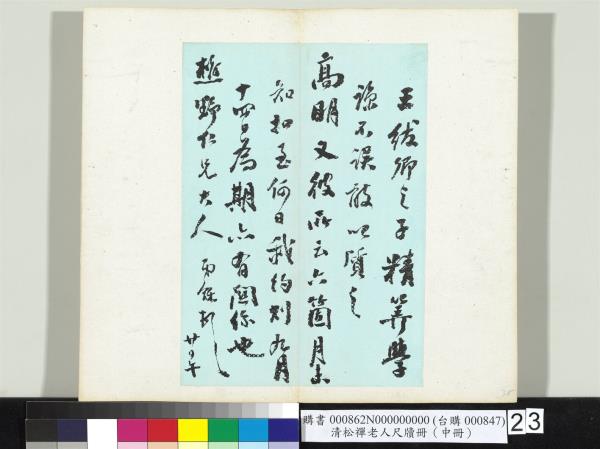 王紱卿之子精算學
諒不誤敢以質之
高明又彼所云六箇月未
知扣至何日我約刻九月
十四日為期亦有關係也
樵野仁兄大人
廿日午
購書 000862N000000000 (台購 000847)
清松禪老人尺牘冊（中冊）
23